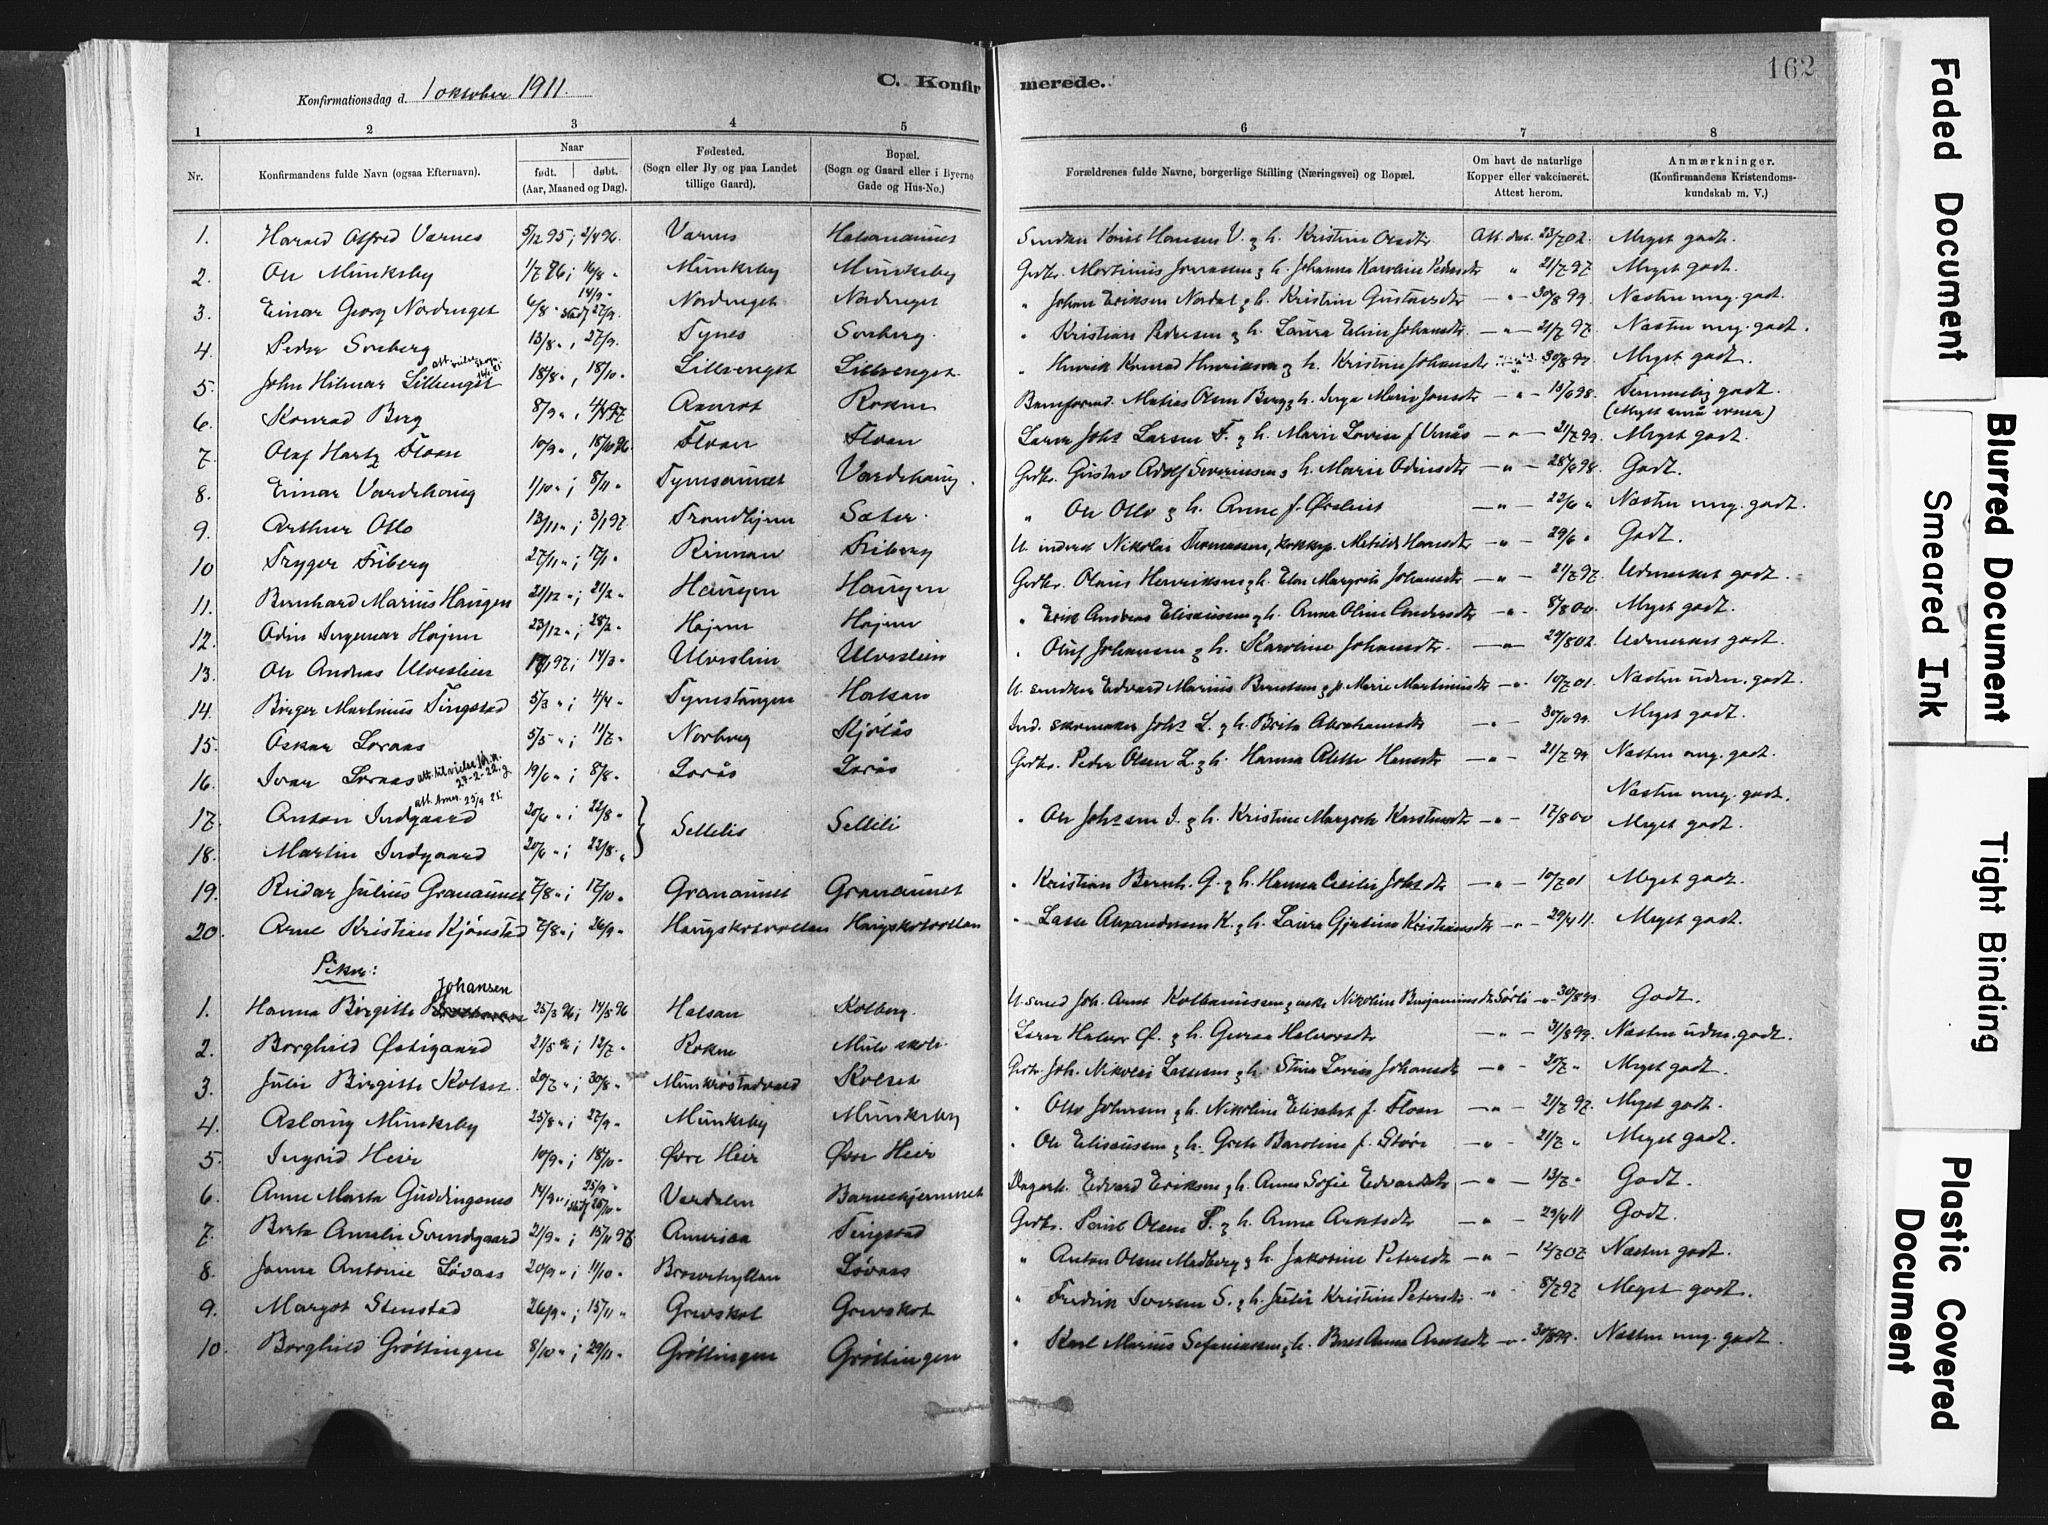 162
Konfirmationsdag d. 1 oktober 1911.
C. Konfirmerede.
1 2 3 4 5 6 7 8
Nr.
Konfirmandens fulde Navn (ogsaa Efternavn).
Naar
født. døbt.
(Aar, Maaned og Dag).
Fødested.
(Sogn eller By og paa Landet
tillige Gaard).
Bopæl.
(Sogn og Gaard eller i Byerne
Gade og Hus-No.)
Forældrenes fulde Navne, borgerlige Stilling (Næringsvei) og Bopæl.
Om havt de naturlige
Kopper eller vakcineret.
Attest herom.
Anmærkninger.
(Konfirmandens Kristendoms-
kundskab m. V.)
1. Harald Alfred Værnes 5/12 95; 2/4 96. Værnes Halsanaunet Hansen V. g. h. Kristine Olsdtr Att. dat. 23/7 02. Meget godt.
2. Ole Munkeby 1/7 96; 16/8 " Munkeby Munkeby Gbr. Martinus Jonassen g. h. Johanna Karoline Pedersdtr " 21/7 97 Meget godt.
3. Einar Georg Nordenget 6/8 " 14/9 " stadf 27/9. Nordenget Nordenget " Johan Eriksen Nordal g. h. Kristine Gustavsdtr — " — 30/8 99. Næsten meg. godt.
4. Peder Sveberg 13/8 ", 27/9. Tynes Sveberg. " Kristian Pedersen g. h. Laura Elise Johansdtr — " — 21/7 97. Næsten meg. godt.
5. John Hilmar Lillenget 18/8 ", 18/10 " Lillevenget Lillevenget. " Henrik Konrad Henriksen g. h. Kristine Johansdtr 30/8 99 Meget godt.
6. Konrad Berg 8/9 ", 4/4 97 Aasrot Rokne Matias Olsen Berg g. h. Inga Marie Jonsdtr — " — 15/6 98. Temmelig godt. (Meget små evner)
7. Olaf Hartz Floan 10/9 ", 18/10 96. Floan Floan Johs Larsen F. g. h. Marie Lovise f. Vinås — " — 21/7 99. Meget godt.
8. Einar Vardehaug 1/10 "; 8/11 " Tynesaunet Vardehaug. Gbr. Gustav Adolf Severinsen g. h. Marie Odinsdtr — " — 28/6 98. Godt.
9. Arthur Otlo 13/11 "; 3/1 97. Trondhjem Sæter " Ole Otlo g. h. Anne f. — " — 22/6 " Næsten meg. godt.
10 Trygve Friberg 27/11 "; 17/1 " Rinnan Friberg Nikolai Thomassen, Metilde Hansdtr — " — 29/6 " Godt.
11. Bernhard Marius Haugen 21/12 "; 21/2 " Haugen Haugen Gbr. Olaus Henriksen g. h. Elen Margrete Johansdtr — " — 21/7 97. Udmerket godt.
12. Odin Ingemar Hojem 23/12 "; 28/2 " Hojem Hojem " Erik Andreas Elisæussen g. h. Anna Oline Andersdtr — " — 8/8 00. Meget godt.
13. Ole Andreas Ulveslien 17/1 97; 14/3 " Ulveslien Ulveslien " Oluf Johansen g. h. Karoline Johansdtr. — " — 29/8 02. Udmerket godt.
14. Birger Martinus Tingstad 5/3 "; 4/4 " Tynestangen Halsan Edvard Marius Berntsen g. h. Marie Martinusdtr — " — 10/7 01. Næsten udm. godt.
15. Oskar Loraas 5/5 "; 11/7 " Norberg Kjølås Ind. skomaker Johs L. g. h. Brita Abrahamsdtr — " — 30/10 99. Meget godt.
16. Ivar Loraas 19/6 "; 8/8 " Lorås Lorås Gbr. Peder Olsen L. g. h. Hanna Alette Hansdtr — " — 21/7 99. Næsten meg. godt.
17. Anton Indgaard att. Amer. 25/9 25. 20/6 "; 22/8 " } Sellelis Selleli " Ole Johsen I. g. h. Kristine Margrete Karstinsdtr — " — 17/8 00 Næsten meg. godt.
18. Martin Indgaard 20/6 "; 22/8 " Meget godt.
19. Reidar Julius Granaunet 7/8 "; 17/10 " Granaunet Granaunet " Kristian Bernh. G. g. h. Hanna Cecilie Johsdtr — " — 10/7 01 Meget godt.
20. Arne Kristian Kjønstad 7/8 "; 26/9 " Haugskotvollan Haugskotvollan " Lasse Alexandersen K. g. h. Laura Gjertine Kristiansdtr — " — 29/4 11. Meget godt.
Piker:
1. Hanna Birgitte Johansen 25/3 96; 14/5 96 Halsan Kolberg. Joh. Arnt Kolbanussen Nikoline Benjaminsdtr Sørli — " — 30/8 99 Godt.
2. Borghild Østigaard 21/5 96; 12/7 " Rokne Mule skole. Halvor Ø. g. h. Guruа Halvorsdtr " 31/8 99. Næsten udm. godt.
3. Julie Birgitte Kolset. 20/7 "; 30/8 " Munkrøstadvald Kolset Gbr. Joh. Nikolai Lassesen g. h. Stina Lovise Johansdtr — " — 20/7 " Meget godt.
4. Aslaug Munkeby 25/8 "; 27/9 " Munkeby Munkeby " Otto Johnsen g. h. Nikoline Elisabet f. Floan — " — 21/7 97. Meget godt.
5. Ingrid Heir 10/9 "; 18/10 " Øvre Heir Øvre Heir " Ole Elisæussen g. h. Grete Baroline f. Støre — " — 21/7 " Meget godt.
6. Anne Marta Guddingsmo 14/9 "; 25/9 " stadf 25/10. Verdalen Barnehjemmet Dagarb. Edvard Eriksen g. h. Anne Sofie Edvardsdtr — " — 13/7 " Godt.
7. Berta Amalie Svendgaard 21/9 "; 15/11 96 Amerika Tingstad Gbr. Paul Olsen S. g. h. Anna Arntsdtr — " — 29/4 11 Godt.
8. Janna Antonie Løvaas 20/9 "; 11/10 " Brovehyllan Løvaas " Anton Olsen Madberg g. h. Jakobine Petersdtr — " — 12/7 07. Næsten godt.
9. Margot Stenstad 26/9 "; 15/11 " Grevskot Grevskot " Fredrik Iversen S. g. h. Julie Kristine Petersdtr — " — 8/7 97 Meget godt.
10. Borghild Grøttingen 8/10 "; 29/11 " Grøttingen Grøttingen " Karl Marius Sefaniassen g. h. Beret Anna Arntsdtr — " — 30/8 99. Næsten meg. godt.
Faded Document
Blurred Document
Smeared Ink
Tight Binding
Plastic Covered
Document